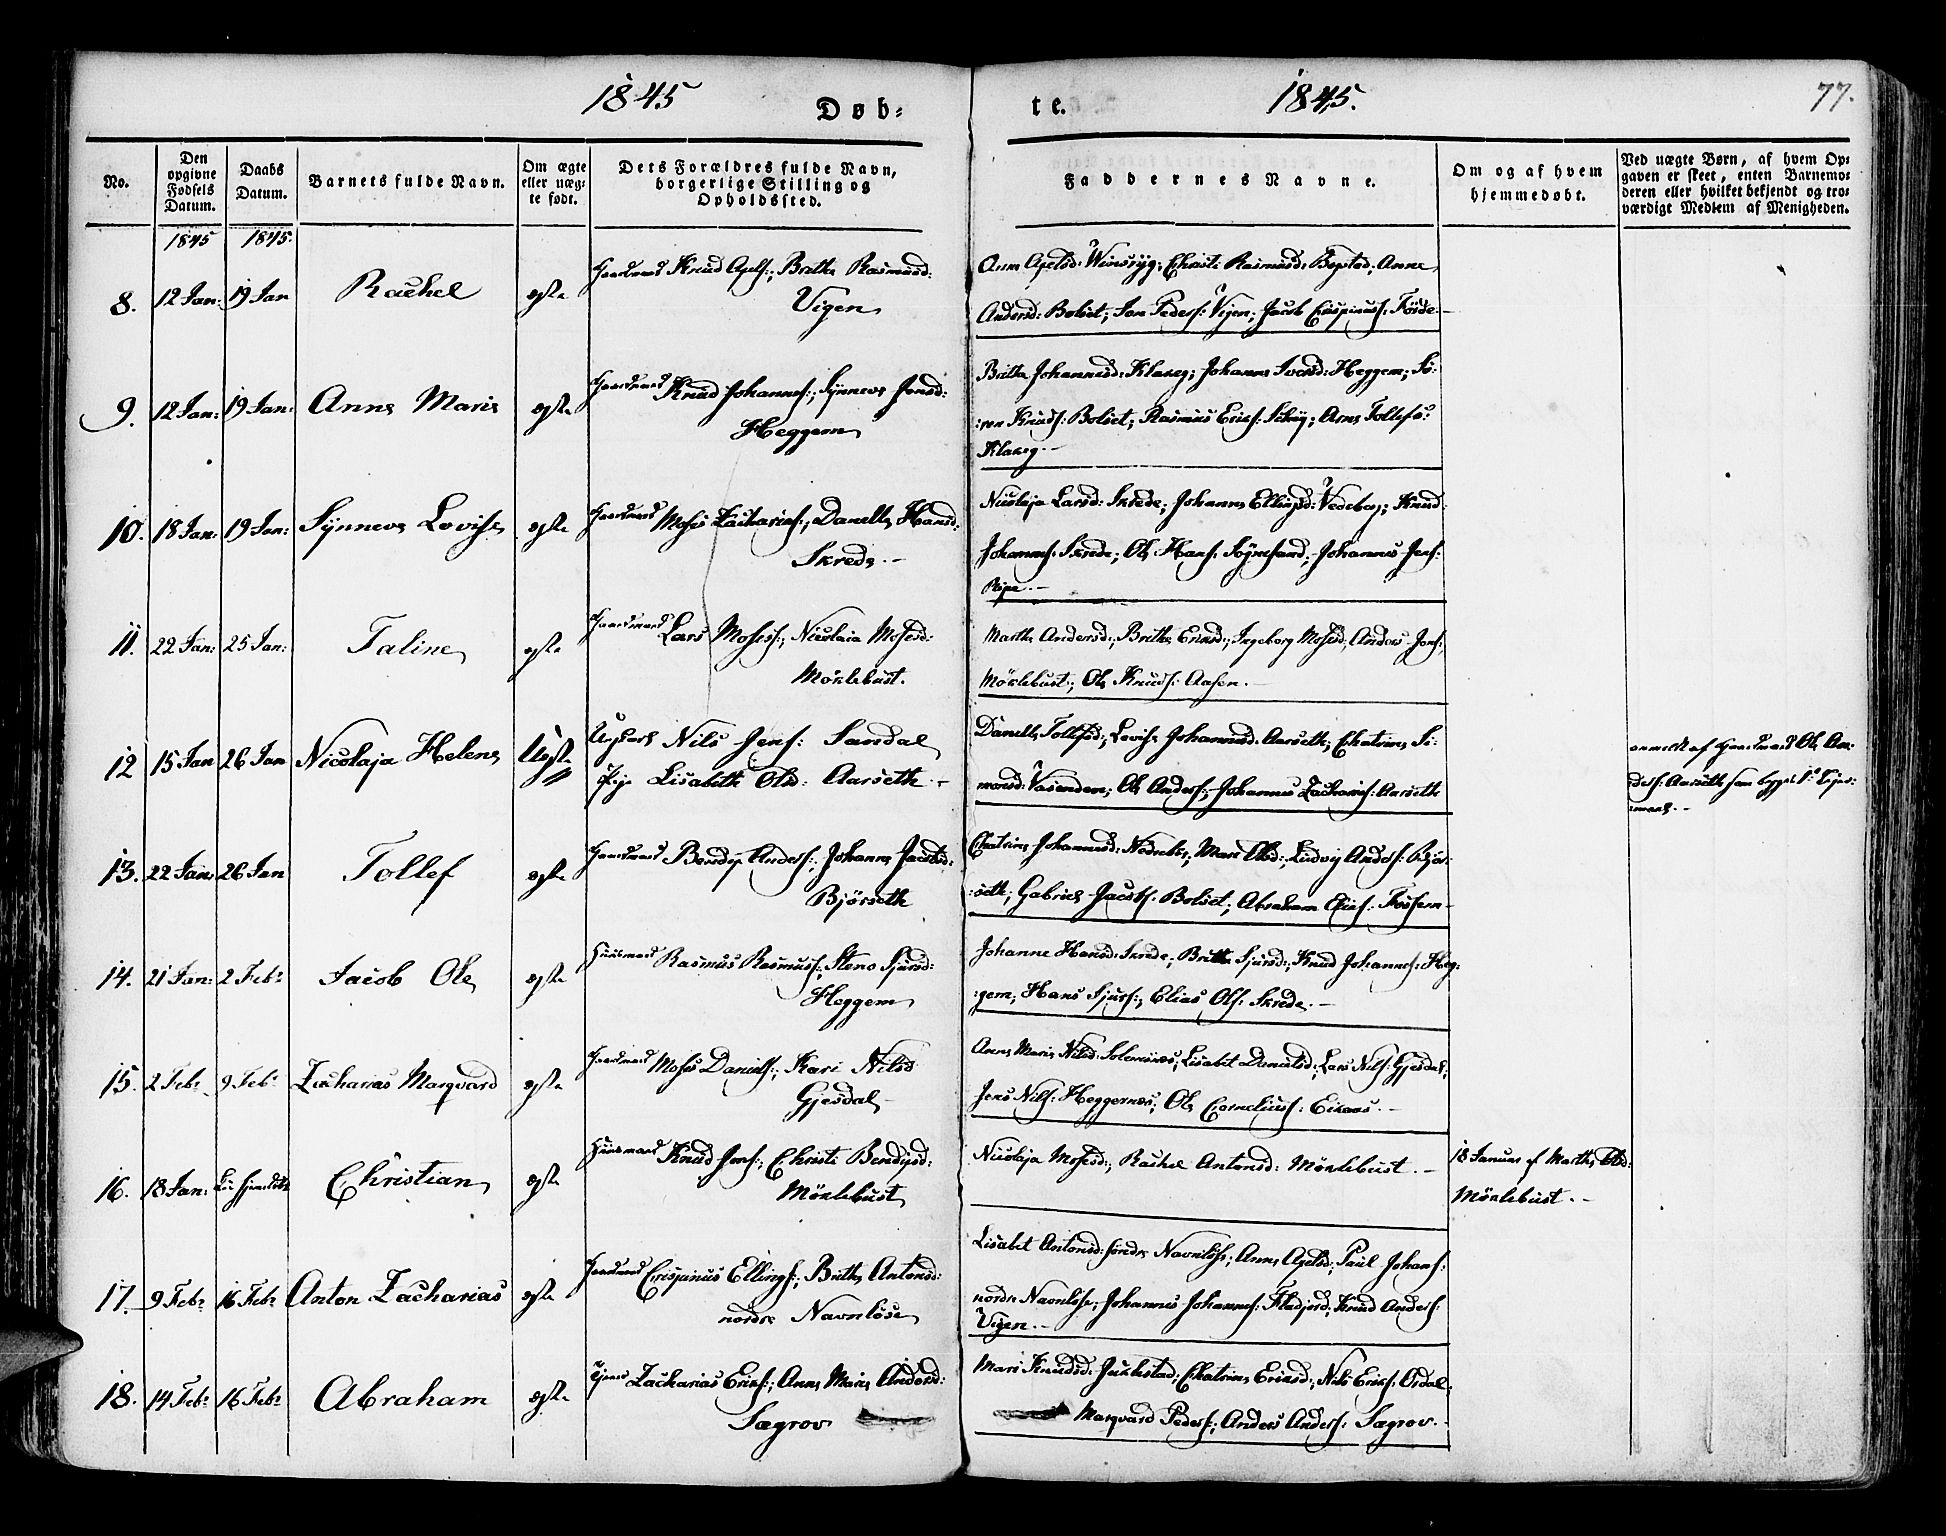 1845
Døb-
te.
1845.
77.
No.
Den opgivne Fødsels Datum.
Daabs Datum.
Barnets fulde Navn.
Om ægte eller uæg-te født.
Dets Forældres fulde Navn, borgerlige Stilling og Opholdssted.
Faddernes Navne.
Om og af hvem hjemmedøbt.
Ved uægte Børn, af hvem Op-gaven er skeet, enten Barnemo-deren eller hvilket bekjendt og tro-værdigt Medlem af Menigheden.
1845 1845.
8. 12 Jan: 19 Jan Rachel ægte Gaardmand Knud Apels:, Britha Rasmusd:
Vigen
Anne
Andersd: Bolset; Jan Peders: Vigen; Jacob Crispinuss: Förde.-
9. 12 Jan: 19 Jan: Anne Marie ægte Gaardmand Knud Johannes:, Synneve Jonsd:
Heggem
Britha Johannesd: Klakeg; Johanne Iversd: Heggem; Sö-
:ren Knuds: Bolset; Rasmus Ericks: Arne Tollefs:
Klakeg.-
10. 18 Jan: 19 Jan: Synneve Lovise ægte Gaardmand Moses Zacharias:, Danelle Hansd:
Skrede.-
Nicolaja Larsd: Skrede; Johanne Ellingsd: Knud
Johannes: Skrede; Ole Hans: Johannes Jens:
Ripe.-
11. 22 Jan: 25 Jan: Taline ægte Gaardmand Lars Moses:, Nicolaia Mosesd:
Möklebust.
Marthe Andersd:, Brithe Ericksd:, Ingeborg Mosesd, Anders Jons:,
Möklebust; Ole Knuds: Aasen.-
12 15 Jan 26 Jan Nicolaja Helene Uægte Ungkarl Nils Jens: Sandal
Pige Lisabeth Olsd: Aarseth.-
Danelle Tollefsd:, Lovise Johannesd: Aarseth; Chatrine Si-
monsd: Vasenden; Ole Anders:, Johannes Zacharias: Aarseth
anmeldt af Gaardmand Ole An-
ders: Aarseth som
13. 22 Jan: 26 Jan Tollef ægte Gaardmand Bendix Anders:, Johanne Jacobsd:
Björseth
Chatrine Johannesd: Mari Olsd:, Ludvig Anders: Björ-
:seth; Gabriel Jacobs: Bolset; Abraham Elias: Fossem-
14. 21 Jan: 2 Feb: Jacob Ole ægte Huusmand Rasmus Rasmus:, Steno Sjursd:
Heggem
Johanne Hansd: Skrede; Britha Sjursd:, Knud Johannes: Heg-
:gem; Hans Sjurs:, Elias Ols: Skrede.-
15. 2 Feb: 9 Feb: Zacharias Marqvard ægte Gaardmand Moses Daniels:, Kari Nilsd
Gjesdal
Anne Marie Nilsd: Solemsnes; Lisabet Danielsd:, Lars Nils: Gjesdal;
Jens Nils: Heggernes; Ole Cornelius: Eikaas.-
16. 18 Jan: Christian ægte Huusmand Knud Jons:, Christi Bendixd:
Möklebust
Nicolaja Mosesd:, Rachel Antonsd: Möklebust.-
18 Januar af Marthe Olsd:
Möklebust.-
17. 9 Feb: 16 Feb: Anton Zacharias ægte Gaardmand Crispinus Ellings:, Brithe Antonsd:
nordre Navnlöse
Lisabet Antonsd: söndre Navnlöse; Anne Apelsd; Paul Johans:
nordre Navnlöse; Johannes Johannes: Fladjord; Knud Anders:
Vigen.-
18. 14 Feb: 16 Feb: Abraham ægte Zacharias Ericks:, Anne Marie Andersd:
Sægrov
Mari Knudsd: Chatrine Ericksd:, Nils Ericks: Årdal
Marqvard Peders:, Anders Anders: Sægrov.-